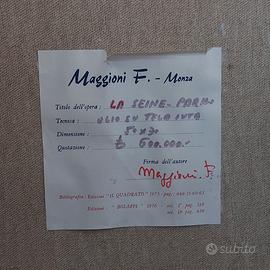 Maggioni F. - Monza
Titolo dell'opera : LA SEINE - PARIGI
Tecnica : OLIO SU TELA IUTA
Dimensione : 50x30
Quotazione : £ 600.000.-
Firma dell'autore
Maggioni. F.
Bibliografia : Edizioni "IL QUADRATO" 1975 - pag.
Edizioni " BOLAFFI " 1976 -
subito